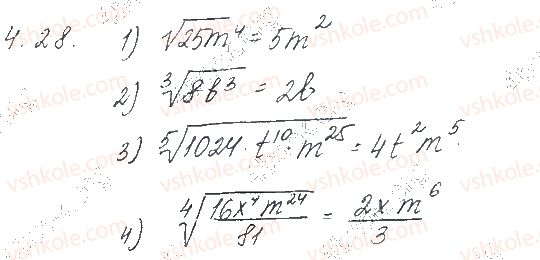 4.28. 1) √25m⁴ = 5m²
2) ∛8b³ = 2b
3) ⁵√1024 · t¹⁰ · m²⁵ = 4t²m⁵.
4) ⁴√16x⁴m²⁴/81 = 2xm⁶/3
vshkole.com